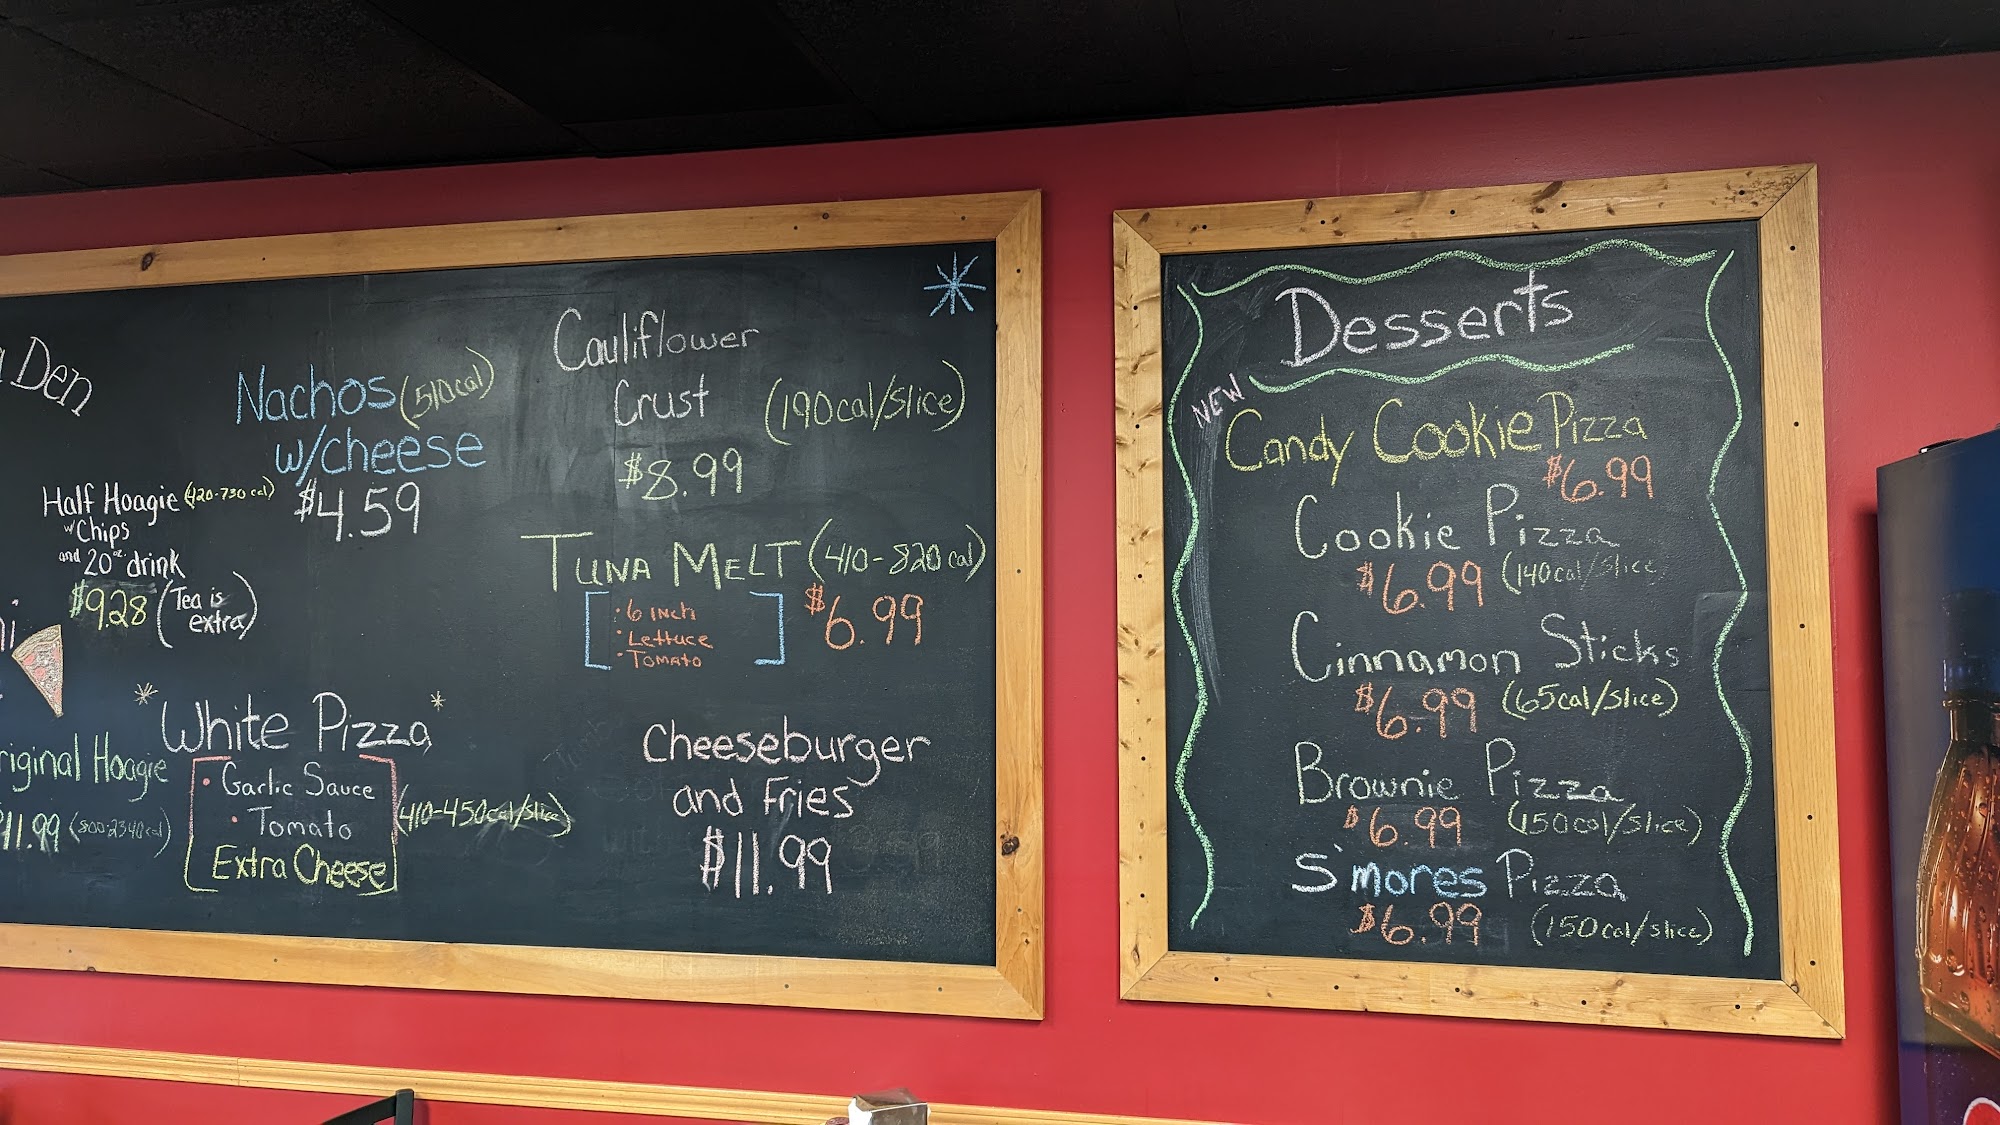 Den
Nachos (510cal)
w/cheese
$4.59
Half Hoagie (420-730 cal)
w/ Chips
and 20 oz. drink
$9.28 (Tea is
extra)
*White Pizza*
• Garlic Sauce
• Tomato
Extra Cheese
(410-450cal/slice)
riginal Hoagie
$11.99 (800-2340cal)
Cauliflower
Crust (190cal/slice)
$8.99
Tuna Melt (410-820cal)
• 6 inch
• Lettuce
• Tomato
$6.99
Cheeseburger
and Fries
$11.99
Desserts
NEW
Candy Cookie Pizza
$6.99
Cookie Pizza
$6.99 (140cal/slice)
Cinnamon Sticks
$6.99 (65cal/slice)
Brownie Pizza
$6.99 (150cal/slice)
S'mores Pizza
$6.99 (150cal/slice)